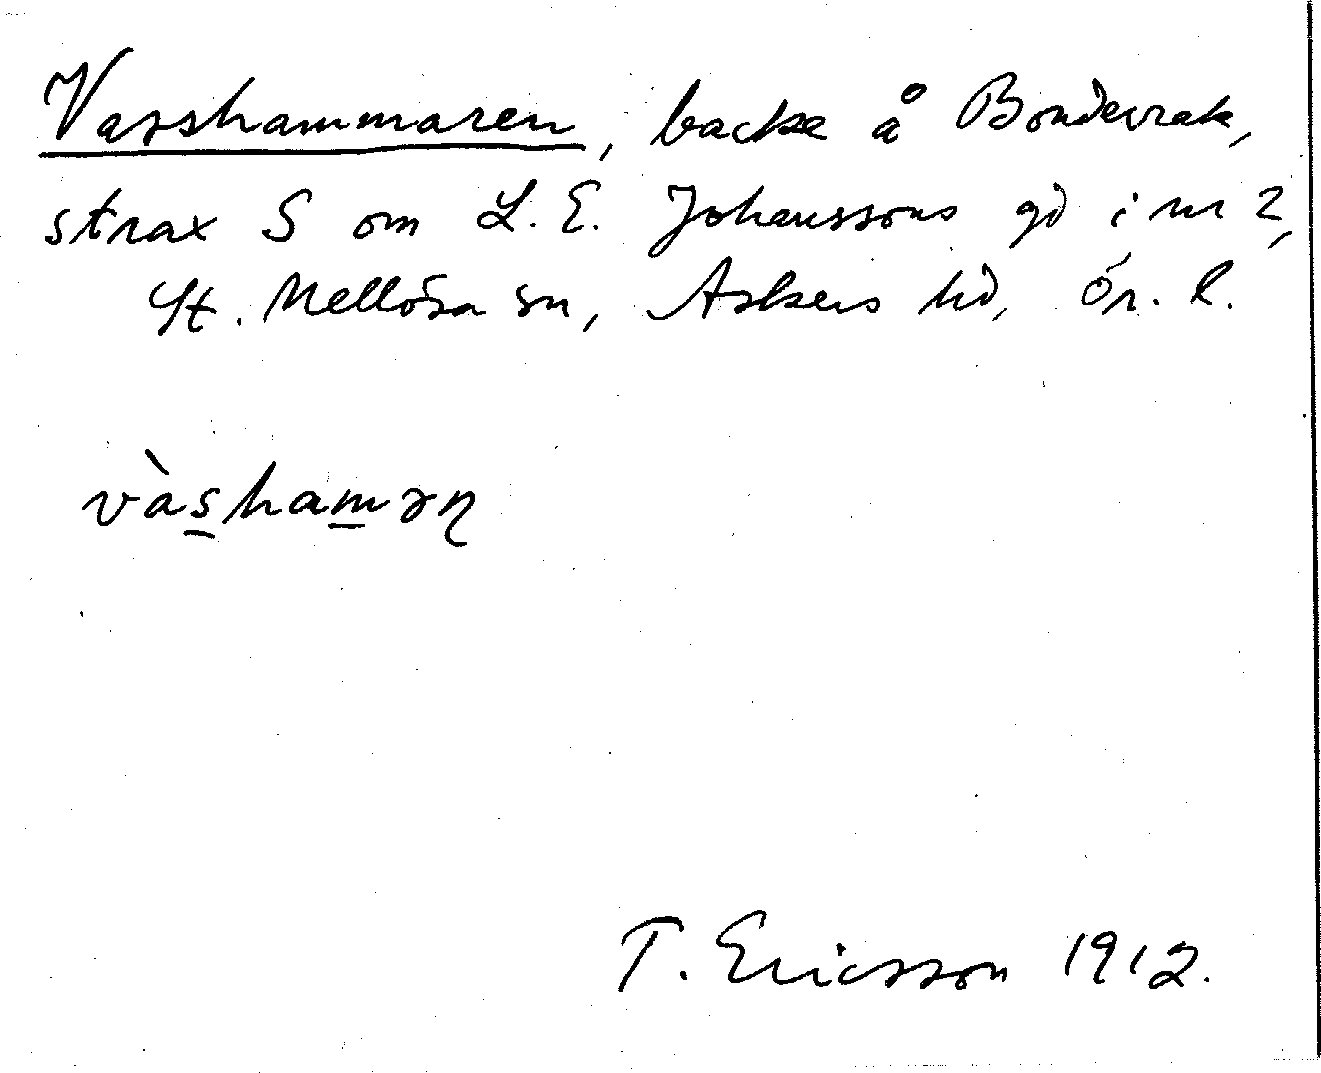 Vasshammaren, backe å Bondevrak,
strax S om L. E. Johanssons gd i nr 2,
St. Mellösa sn, Askers hd, Ör. l.
vàs̲ham̲ərɳ
T. Ericsson 1912.